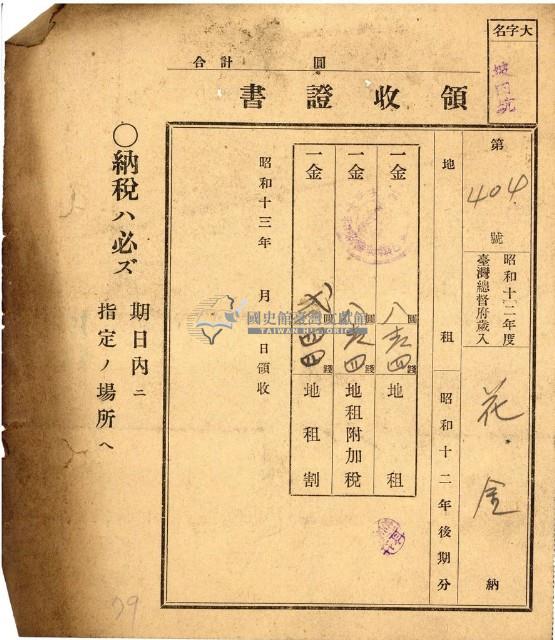 大字名
坡內坑
合計 圓
領收證書
第404號
昭和十二年度
臺灣總督府歲入
花金 納
地租 昭和十二年後期分
一金 圓 錢 地租
一金 圓 錢 地租附加稅
一金 圓 錢 地租割
昭和十三年 月 日領收
○納稅ハ必ズ
期日內ニ
指定ノ場所へ
國史館臺灣文獻館
TAIWAN HISTORICA
79